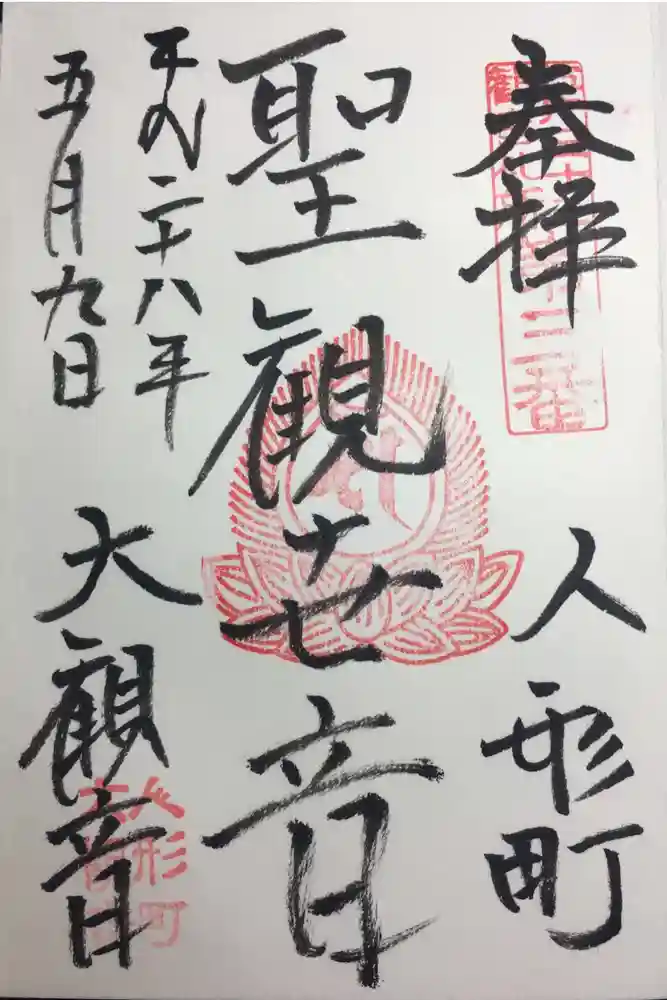 奉拝
人形町
聖観世音
平成二十八年
五月九日
大観音
人形町